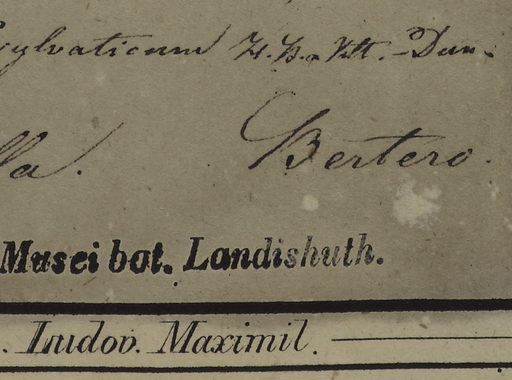 sylvaticum H. B. Kth. - Dun.
lla. Bertero.
Musei bot. Landishuth.
. Ludov. Maximil.